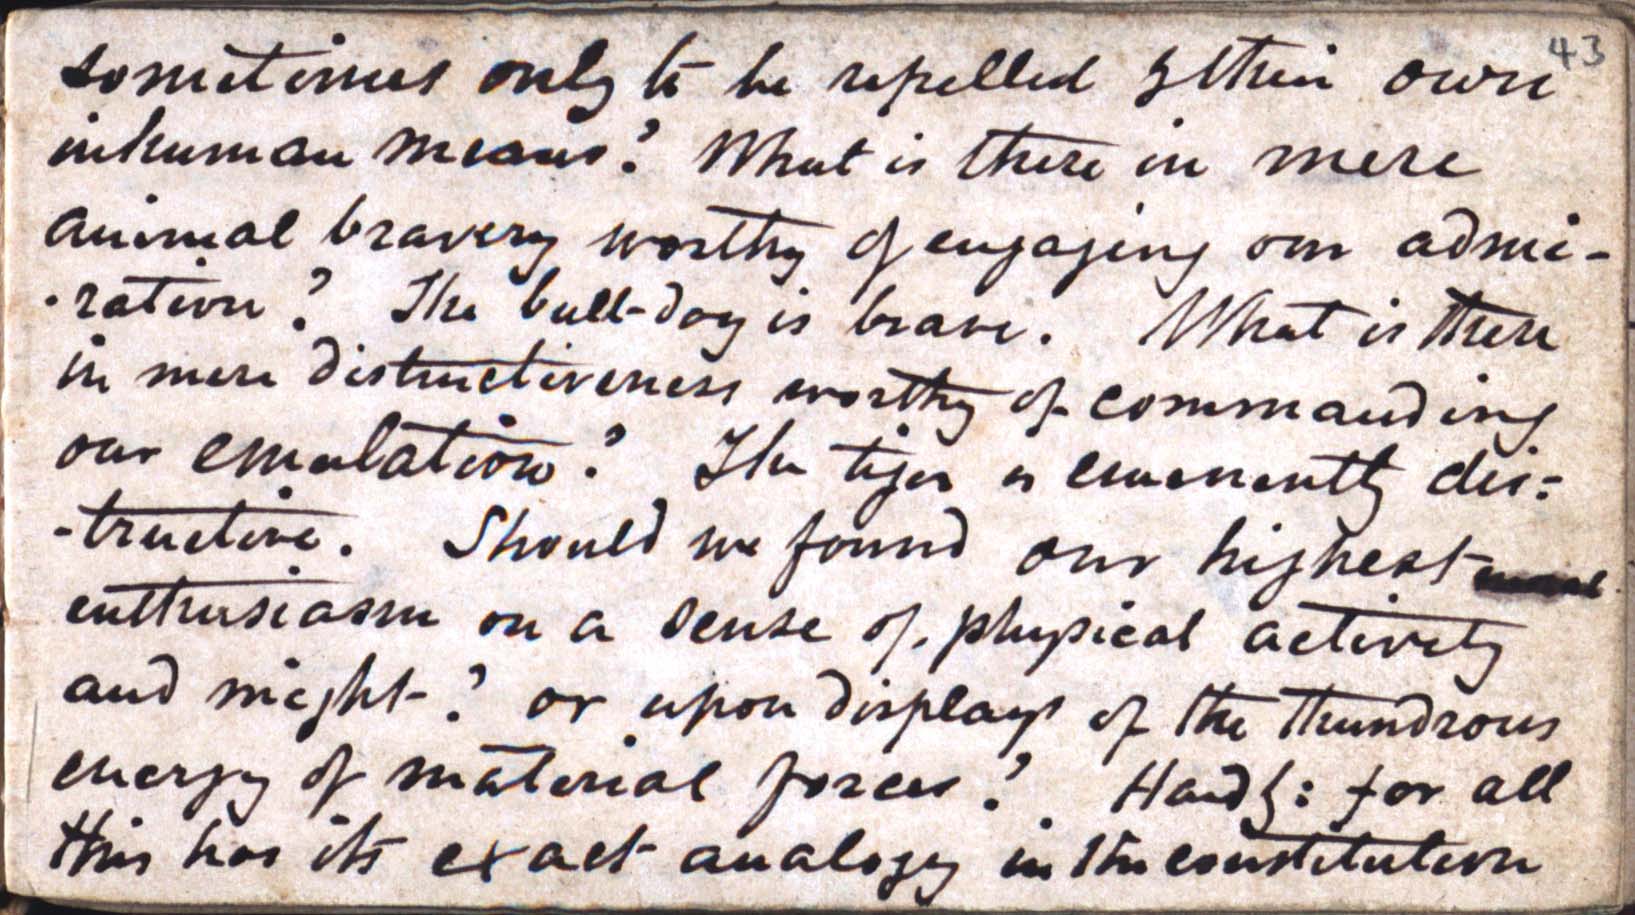 43
sometimes only to be repelled by their own
inhuman means? What is there in mere
animal bravery worthy of engaging our admi-
-ration? The bull-dog is brave. What is there
in mere distructiveness worthy of commanding
our emulation? The tiger is emenently dis=
-tructive. Should we found our highest
enthusiasm on a sense of physical activity
and might? or upon displays of the thundrous
energy of material forces? Hardly: for all
this has its exact analogy in the constitution